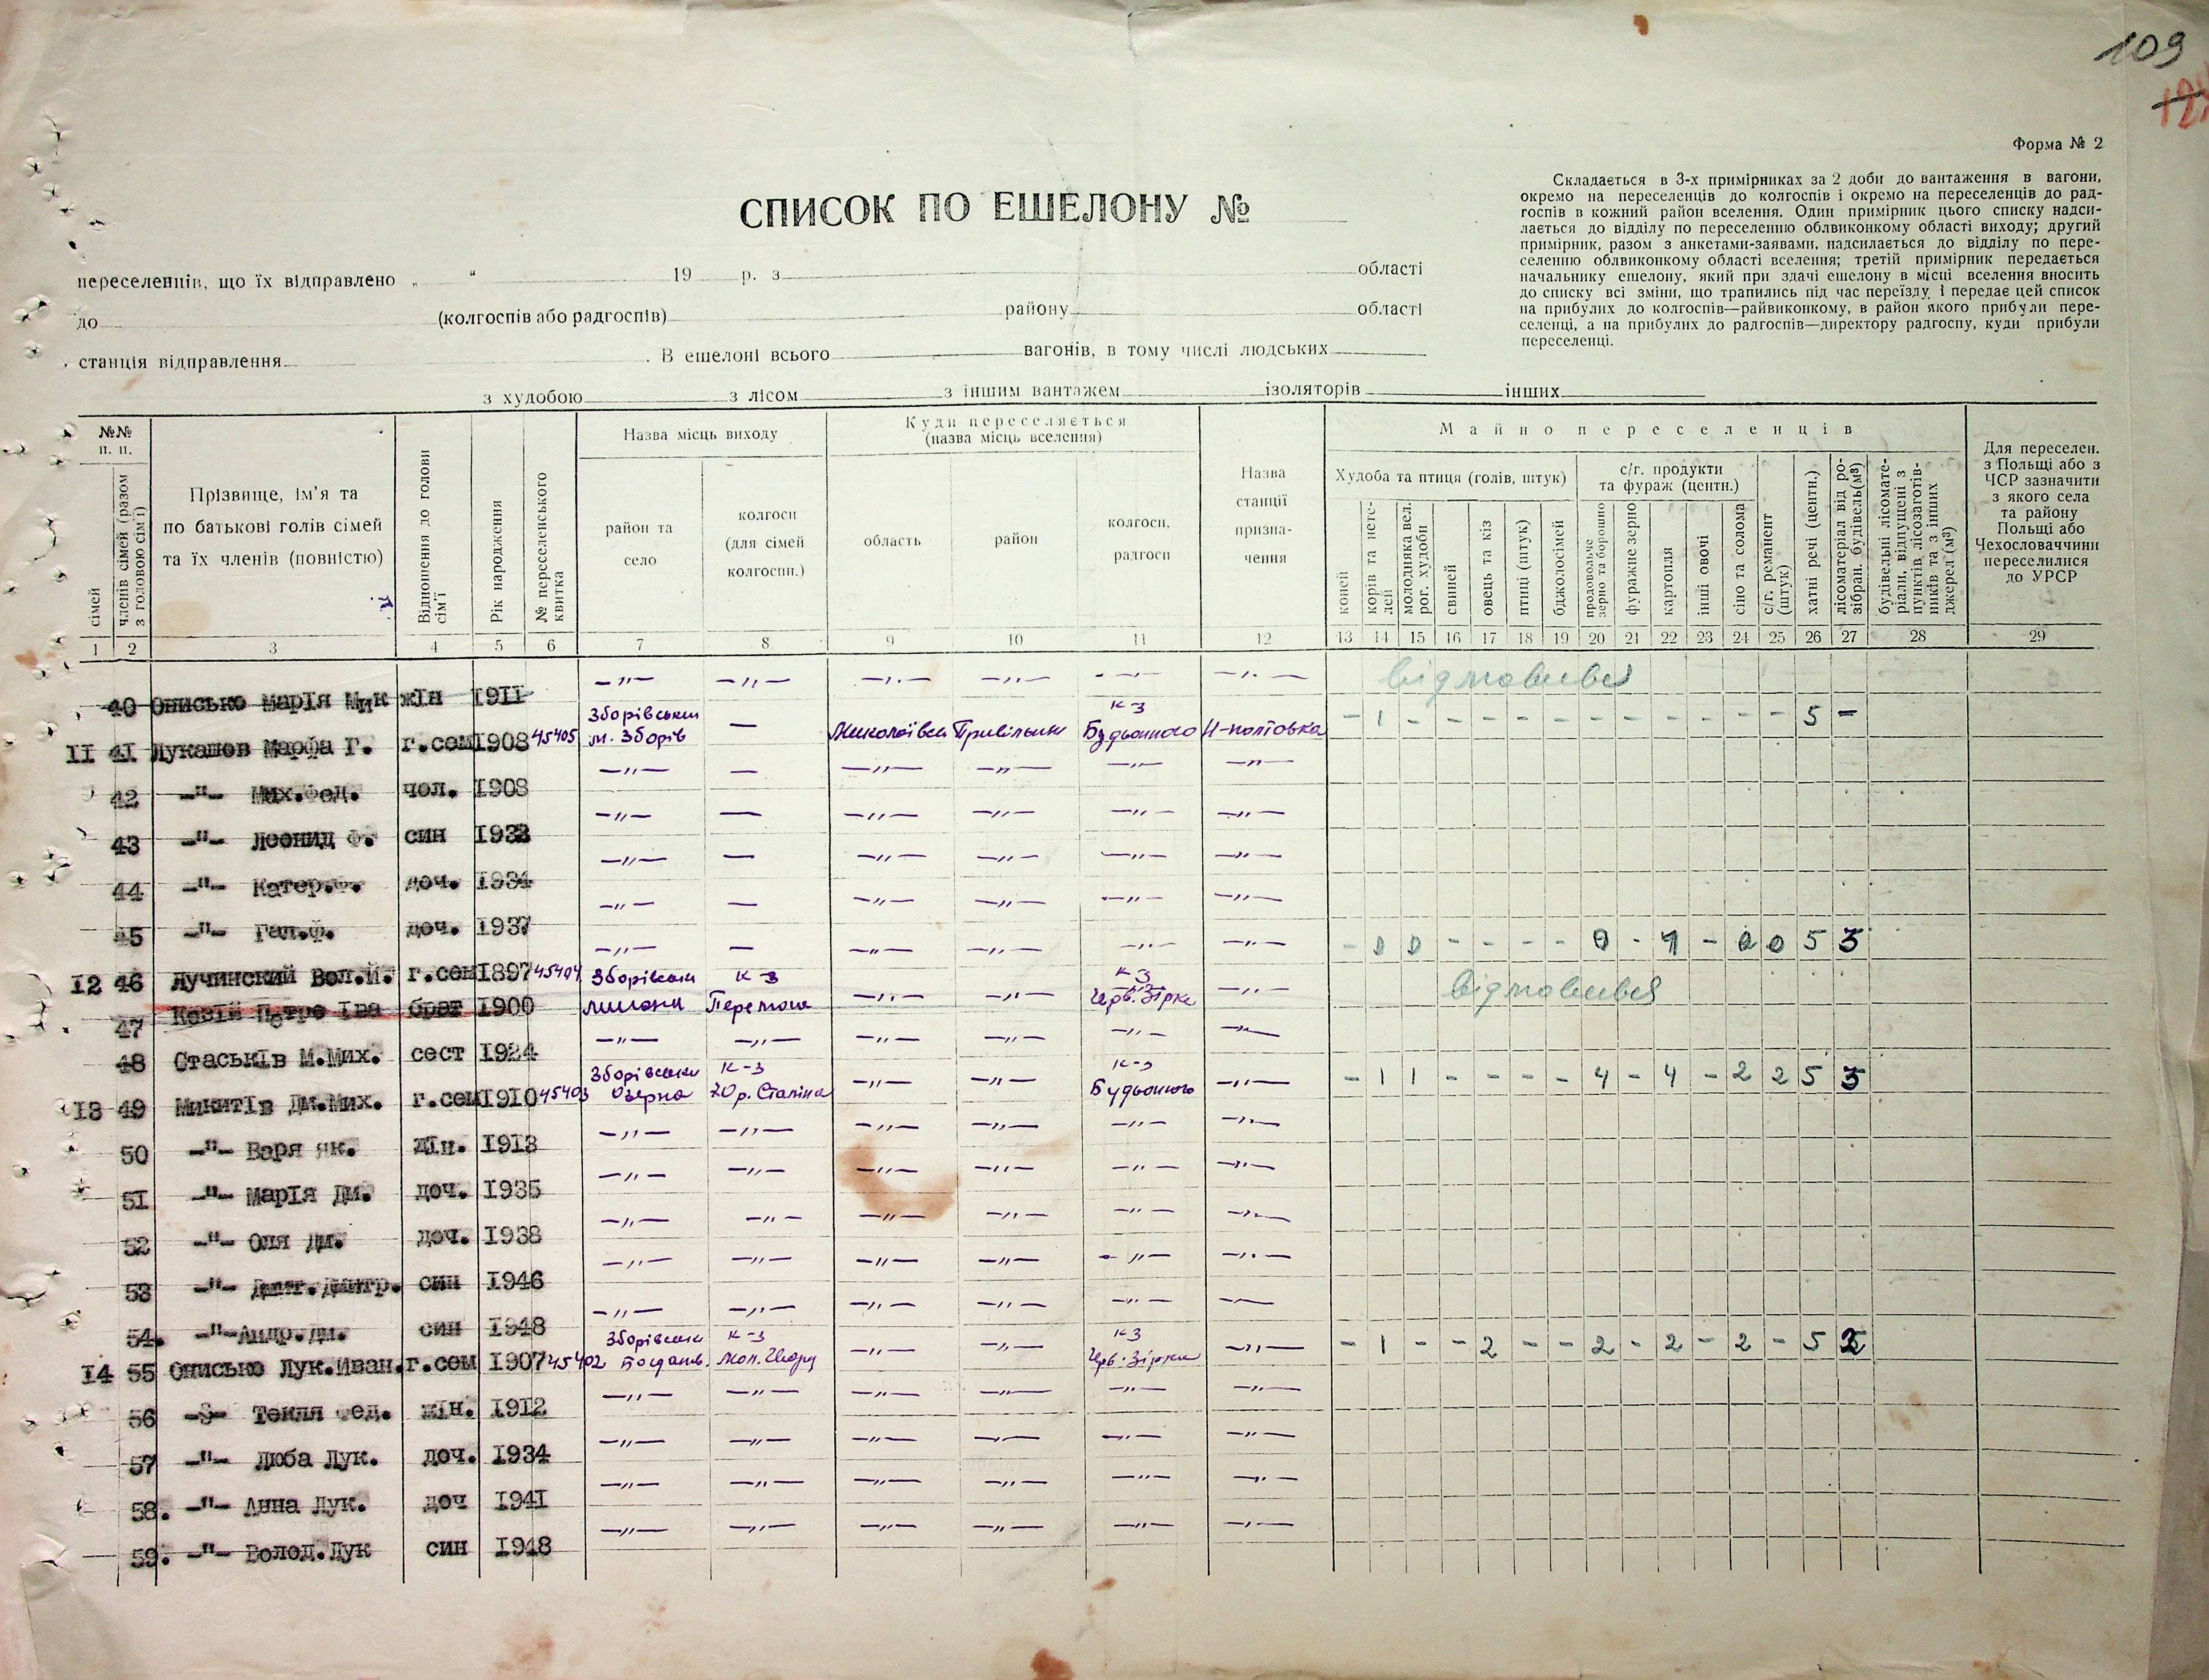 109
Форма № 2
Складається в 3-х примірниках за 2 доби до вантаження в вагони,
окремо на переселенців до колгоспів і окремо на переселенців до рад-
госпів в кожний район вселення. Один примірник цього списку надси-
лається до відділу по переселенню облвиконкому області виходу; другий
примірник, разом з анкетами-заявами, надсилається до відділу по пере-
селенню облвиконкому області вселення; третій примірник передається
начальнику ешелону, який при здачі ешелону в місці вселення вносить
до списку всі зміни, що трапились під час переїзду, і передає цей список
на прибулих до колгоспів—райвиконкому, в район якого прибули пере-
селенці, а на прибулих до радгоспів—директору радгоспу, куди прибули
переселенці.
СПИСОК ПО ЕШЕЛОНУ №
переселенців, що їх відправлено „ “ 19 р. з області
до (колгоспів або радгоспів) району області
станція відправлення . В ешелоні всього вагонів, в тому числі людських
з худобою з лісом з іншим вантажем ізоляторів інших
№№ п. п.
сімей
членів сімей (разом з головою сім'ї)
Прізвище, ім'я та по батькові голів сімей та їх членів (повністю)
Відношення до голови сім'ї
Рік народження
№ переселенського квитка
Назва місць виходу
район та село
колгосп (для сімей колгоспн.)
Куди переселяється (назва місць вселення)
область
район
колгосп, радгосп
Назва станції призна-чення
Майно переселенців
Худоба та птиця (голів, штук)
коней
корів та нете-лей
молодняка вел. рог. худоби
свиней
овець та кіз
птиці (штук)
бджолосімей
с/г. продукти та фураж (центн.)
продовольче зерно та борошно
фуражне зерно
картопля
інші овочі
сіно та солома
с/г. реманент (штук)
хатні речі (центн.)
лісоматеріал від ро-зібран. будівель (м³)
будівельні лісомате-ріали, відпущені з пунктів лісозаготів-ників та з інших джерел (м³)
Для переселен. з Польщі або з ЧСР зазначити з якого села та району Польщі або Чехословаччини переселилися до УРСР
1 2 3 4 5 6 7 8 9 10 11 12 13 14 15 16 17 18 19 20 21 22 23 24 25 26 27 28 29
40 Онисько Марія Мик жін 1911 —"— —"— —"— —"— —"— —"— відмовився
11 41 Лукашов Марфа Г. г.сем 1908 45405 Зборівськи м. Зборів — Миколаївськ Привільнян к-з Будьонного Н-полтовка - 1 - - - - - - - - - - - 5 -
42 —"— Мих.Фед. чол. 1908 —"— — —"— —"— —"— —"—
43 —"— Леонид Ф. син 1933 —"— — —"— —"— —"— —"—
44 —"— Катер.Ф. доч. 1934 —"— — —"— —"— —"— —"—
45 —"— Гал.Ф. доч. 1937 —"— — —"— —"— —"— —"—
12 46 Лучинский Вол.Й. г.сем 1897 45404 Зборівськи к-з Перемога —"— —"— к-з Черв. Зірка —"—
47 Козій Петро Іва брат 1900 відмовився
48 Стаськів М.Мих. сест 1924 —"— —"— —"— —"— —"— —"—
13 49 Микитів Дм.Мих. г.сем 1910 45403 Зборівськи Озерна к-з 20 р. Сталіна —"— —"— к-з Будьонного —"— - 1 1 - - - - 4 - 4 - 2 2 5 3
50 —"— Варя Як. жін. 1913 —"— —"— —"— —"— —"— —"—
51 —"— Марія Дм. доч. 1935 —"— —"— —"— —"— —"— —"—
52 —"— Оля Дм. доч. 1938 —"— —"— —"— —"— —"— —"—
53 —"— Дмит.Дмитр. син 1946 —"— —"— —"— —"— —"— —"—
54. —"— Андр.Дм. син 1948 —"— —"— —"— —"— —"— —"—
14 55 Онисько Лук.Иван. г.сем 1907 45402 Зборівськи Богданів. к-з —"— —"— к-з Черв. Зірка —"— - 1 - - 2 - - 2 - 2 - 2 - 5
56 —"— Текля Фед. жін. 1912 —"— —"— —"— —"— —"— —"—
57 —"— Люба Лук. доч. 1934 —"— —"— —"— —"— —"— —"—
58. —"— Анна Лук. доч 1941 —"— —"— —"— —"— —"— —"—
59. —"— Волод.Лук син 1948 —"— —"— —"— —"— —"— —"—